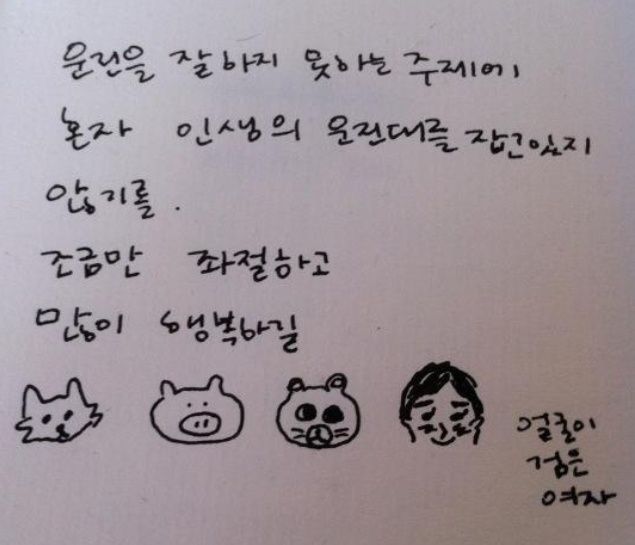 운전을 잘하지 못하는 주제에
혼자 인생의 운전대를 잡고있지
않기를.
조금만 좌절하고
많이 행복하길
얼굴이
검은
여자